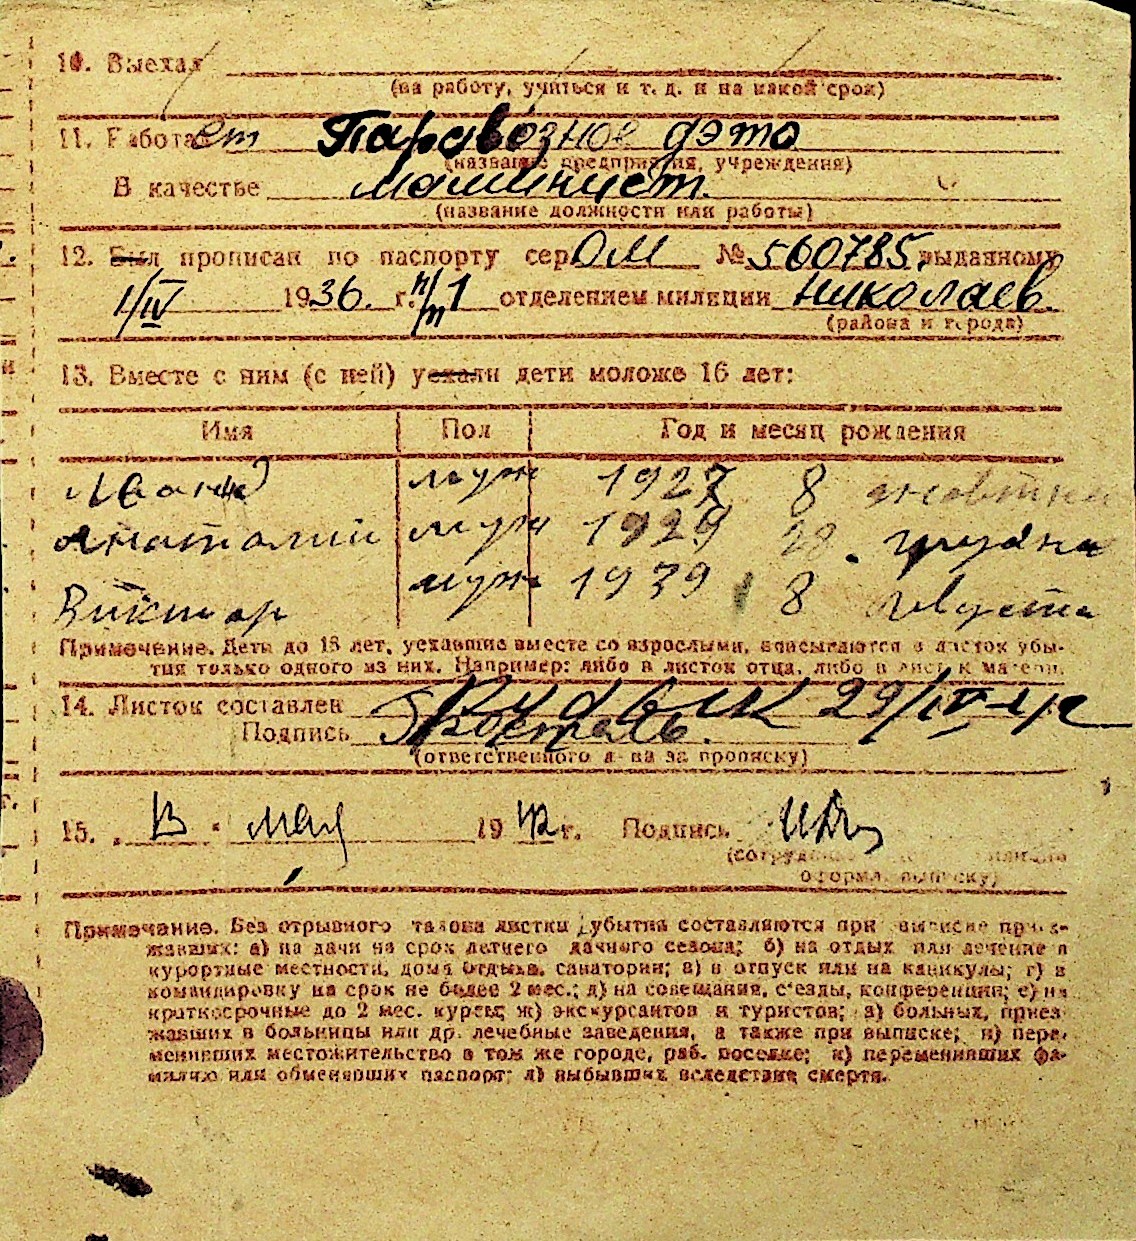 10. Выехал
(на работу, учиться и т. д. и на какой срок)
11. Работает Паровозное дэпо
(название предприятия, учреждения)
В качестве машинист.
(название должности или работы)
12. Был прописан по паспорту сер. ОМ № 560785, выданному
1/IV 1936. г. п/т 1 отделением милиции Николаев.
(района и города)
13. Вместе с ним (с ней) уехали дети моложе 16 лет:
Имя Пол Год и месяц рождения
муж 1927 8 жовтня
Анатолий муж 1929 28. грудня
Виктор муж 1939 8 августа
Примечание. Дети до 16 лет, уехавшие вместе со взрослыми, вписываются в листок убы-
тия только одного из них. Например: либо в листок отца, либо в листок матери.
14. Листок составлен 29/IV-42
Подпись
(ответственного л-ца за прописку)
15. „13" мая 1942 г. Подпись
(сотрудника милиции
оформл. выписку)
Примечание. Без отрывного талона листки убытия составляются при выписке приез-
жавших: а) на дачи на срок летнего дачного сезона; б) на отдых или лечение в
курортные местности, дома отдыха, санатории; в) в отпуск или на каникулы; г) в
командировку на срок не более 2 мес.; д) на совещания, с'езды, конференции; е) на
краткосрочные до 2 мес. курсы; ж) экскурсантов и туристов; з) больных, приез-
жавших в больницы или др. лечебные заведения, а также при выписке; и) пере-
менивших местожительство в том же городе, раб. поселке; к) переменивших фа-
милию или обменявших паспорт; л) выбывших вследствие смерти.